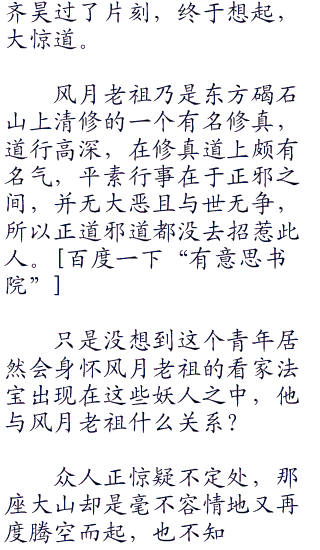 齐昊过了片刻，终于想起，
大惊道。
风月老祖乃是东方碣石
山上清修的一个有名修真，
道行高深，在修真道上颇有
名气，平素行事在于正邪之
间，并无大恶且与世无争，
所以正道邪道都没去招惹此
人。[百度一下“有意思书
院”]
只是没想到这个青年居
然会身怀风月老祖的看家法
宝出现在这些妖人之中，他
与风月老祖什么关系？
众人正惊疑不定处，那
座大山却是毫不容情地又再
度腾空而起，也不知